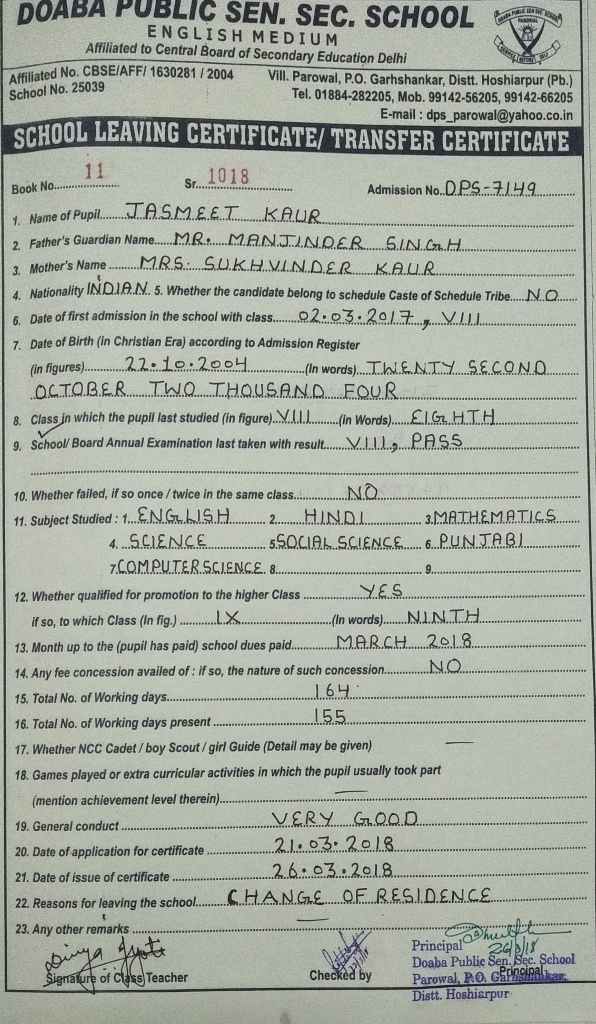 DOABA PUBLIC SEN. SEC. SCHOOL
ENGLISH MEDIUM
Affiliated to Central Board of Secondary Education Delhi
Affiliated No. CBSE/AFF/ 1630281 / 2004
School No. 25039
Vill. Parowal, P.O. Garhshankar, Distt. Hoshiarpur (Pb.)
Tel. 01884-282205, Mob. 99142-56205, 99142-66205
E-mail : dps_parowal@yahoo.co.in
SCHOOL LEAVING CERTIFICATE/ TRANSFER CERTIFICATE
Book No. 11 Sr. 1018 Admission No. DPS-7149
1. Name of Pupil JASMEET KAUR
2. Father's Guardian Name MR. MANJINDER SINGH
3. Mother's Name MRS. SUKHVINDER KAUR
4. Nationality INDIAN. 5. Whether the candidate belong to schedule Caste of Schedule Tribe NO
6. Date of first admission in the school with class 02.03.2017, VIII
7. Date of Birth (in Christian Era) according to Admission Register
(in figures) 22.10.2004 (In words) TWENTY SECOND
OCTOBER TWO THOUSAND FOUR
8. Class in which the pupil last studied (in figure) VIII (in Words) EIGHTH
9. School/ Board Annual Examination last taken with result VIII, PASS
10. Whether failed, if so once / twice in the same class NO
11. Subject Studied : 1. ENGLISH 2. HINDI 3. MATHEMATICS
4. SCIENCE 5. SOCIAL SCIENCE 6. PUNJABI
7. COMPUTER SCIENCE 8. 9.
12. Whether qualified for promotion to the higher Class YES
if so, to which Class (In fig.) IX (In words) NINTH
13. Month up to the (pupil has paid) school dues paid MARCH 2018
14. Any fee concession availed of : if so, the nature of such concession NO
15. Total No. of Working days 164
16. Total No. of Working days present 155
17. Whether NCC Cadet / boy Scout / girl Guide (Detail may be given) —
18. Games played or extra curricular activities in which the pupil usually took part
(mention achievement level therein) —
19. General conduct VERY GOOD
20. Date of application for certificate 21.03.2018
21. Date of issue of certificate 26.03.2018
22. Reasons for leaving the school CHANGE OF RESIDENCE
23. Any other remarks —
Divya Jyoti
Signature of Class Teacher
Checked by
Principal 26/3/18
Doaba Public Sen. Sec. School
Principal
Parowal, P.O. Garhshankar
Distt. Hoshiarpur